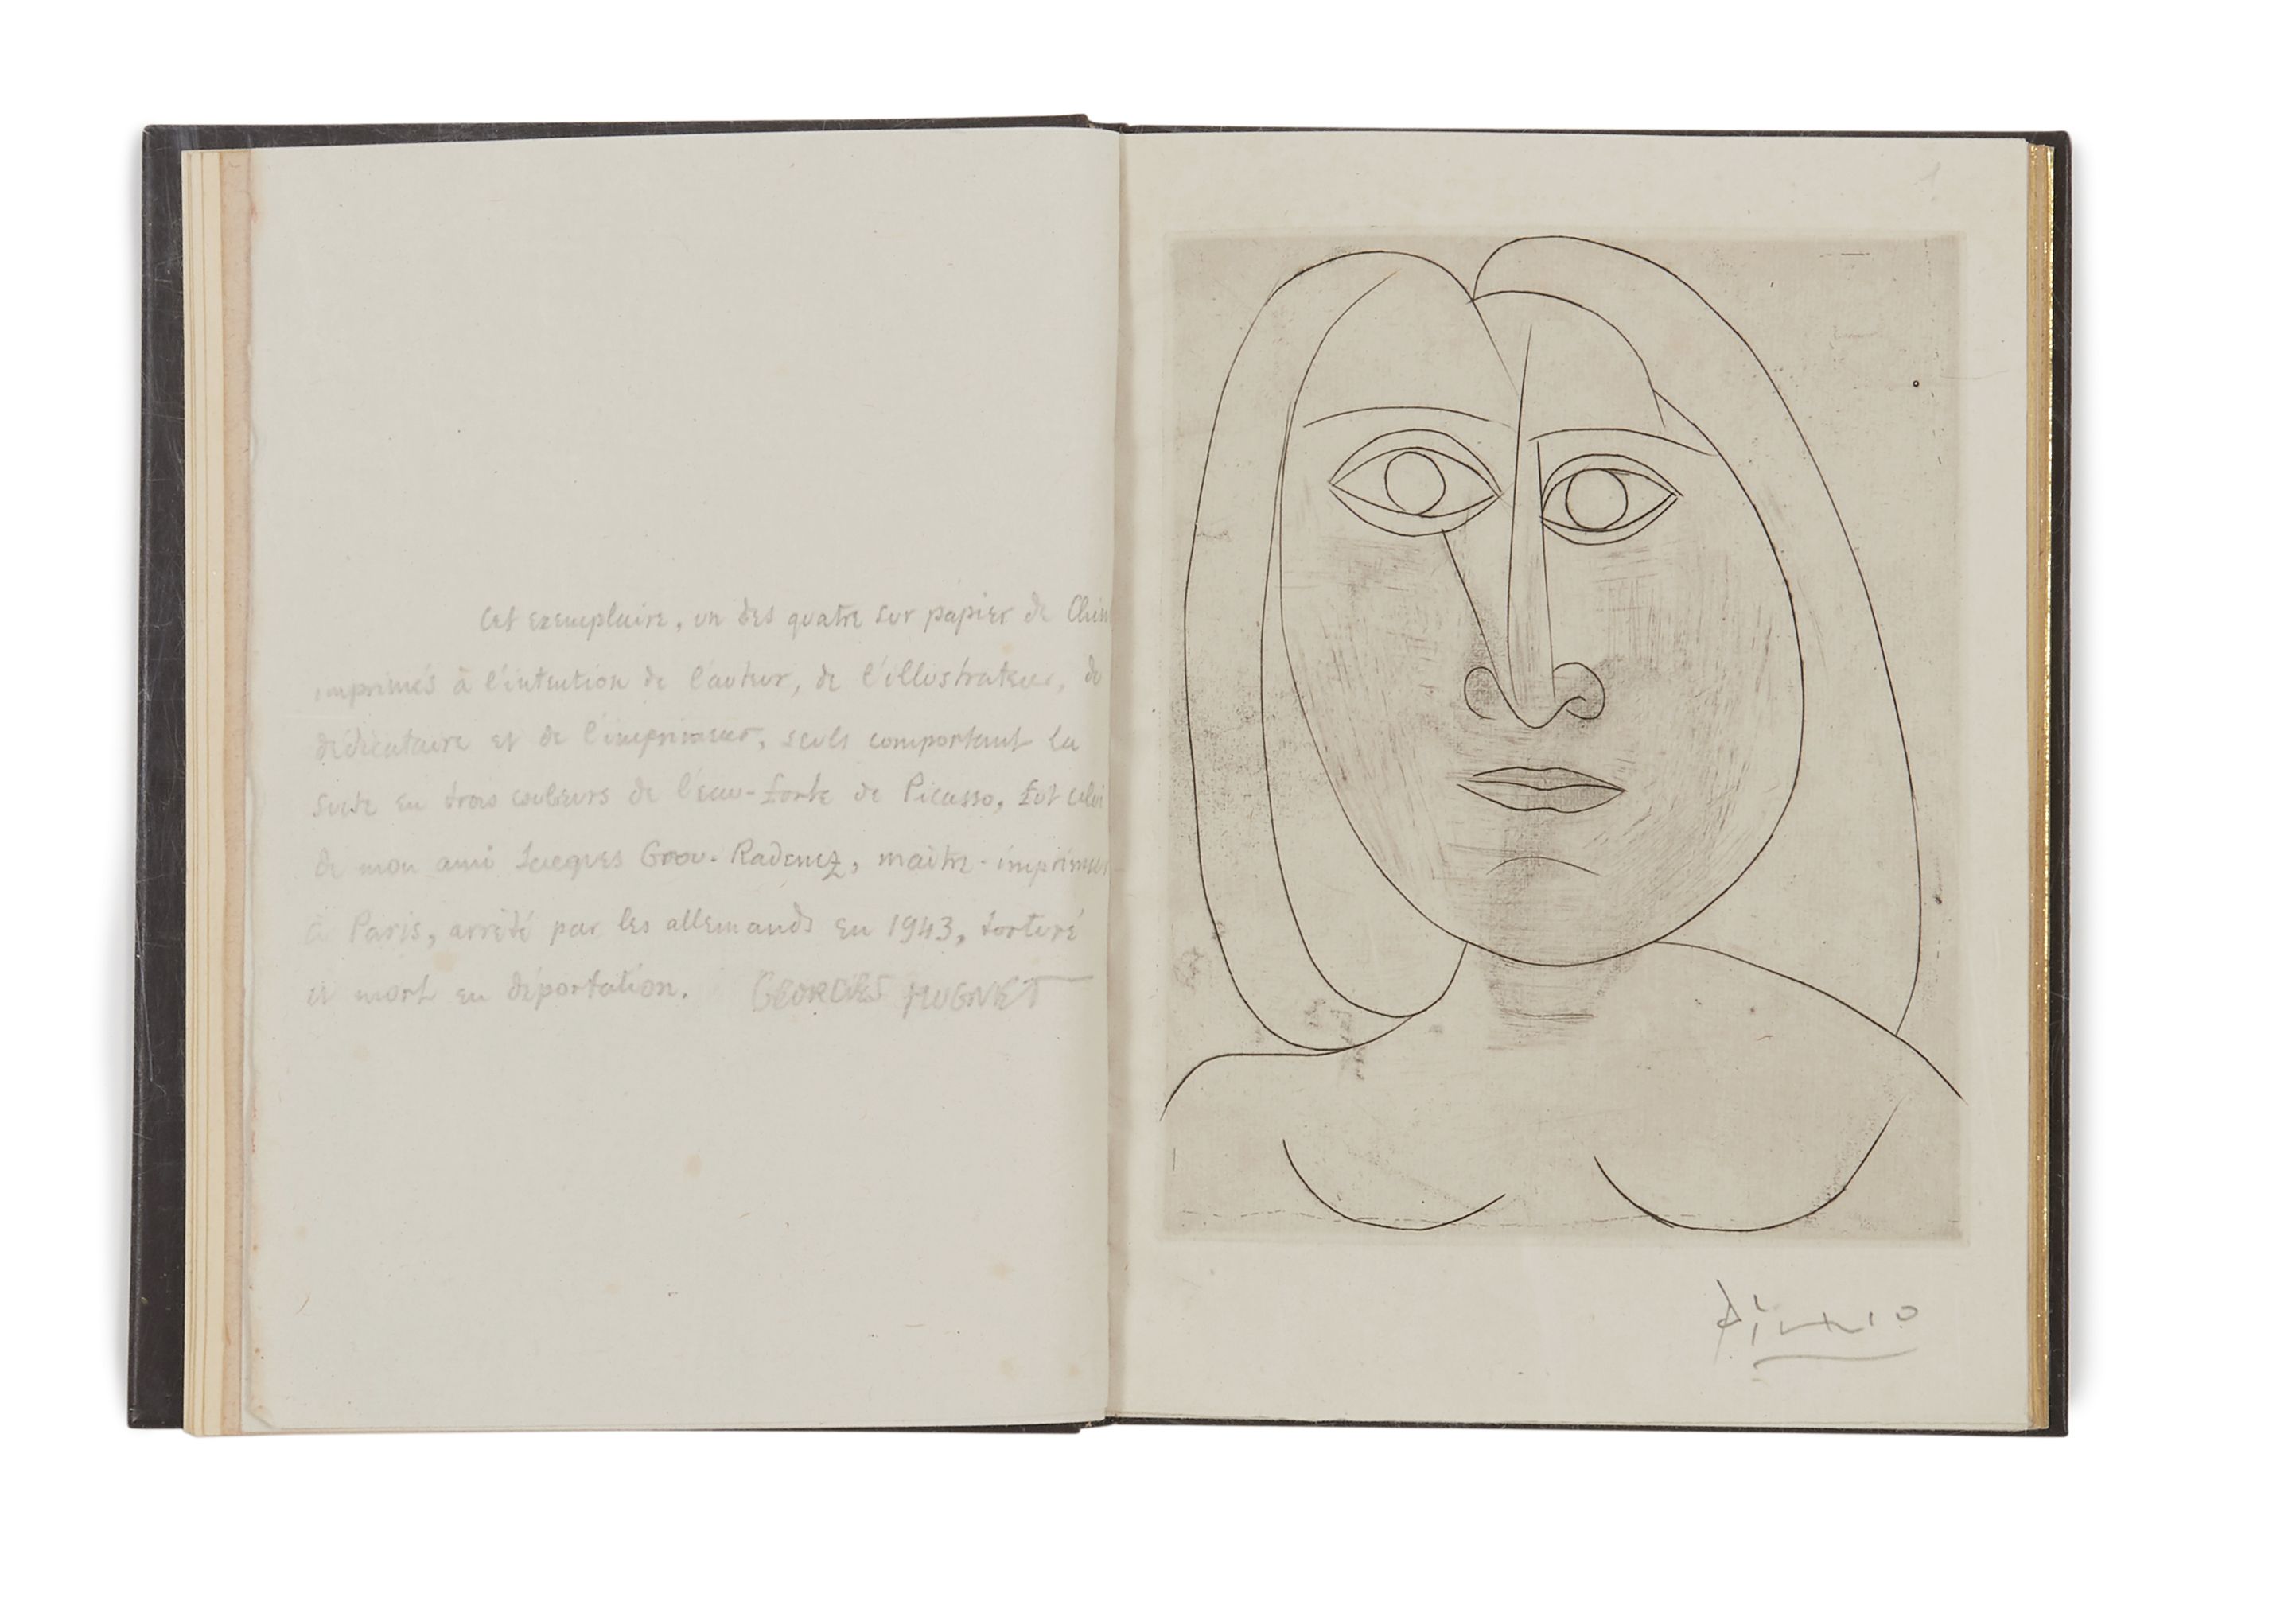 Cet exemplaire, un des quatre sur papier de Chin
imprimés à l'intention de l'auteur, de l'illustrateur, du
dédicataire et de l'imprimeur, seuls comportant la
suite en trois couleurs de l'eau-forte de Picasso, fut celui
de mon ami Jacques Grou-Radenez, maître-imprimeur
à Paris, arrêté par les allemands en 1943, torturé
et mort en déportation. GEORGES HUGNET
1
Picasso